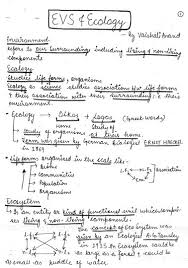 EVS & Ecology
- by Vaishali Anand
Environment
refers to our surroundings including living & non-living
components
Ecology
Studies life forms, organisms
Ecology is science studies association b/w life forms
& their association with their surrounding i.e. their
environment.
• Ecology → Oikos + Logos (Greek words)
Home Study of
→ Study of organisms at their home
→ Term was given by German Biologist ERNST HAECKEL
in 1869
• Life forms organised in the scale like:-
Biosphere
Ecosystem
communities
Population
organism
Ecosystem
→ is an entity or kind of functional unit which comprises
of living & non-living components
→ The concept of Eco System was
given by an Ecologist A.G. Tansley
in 1935. An Ecosystem could be
as large as a forest & could be
small as puddle of water.